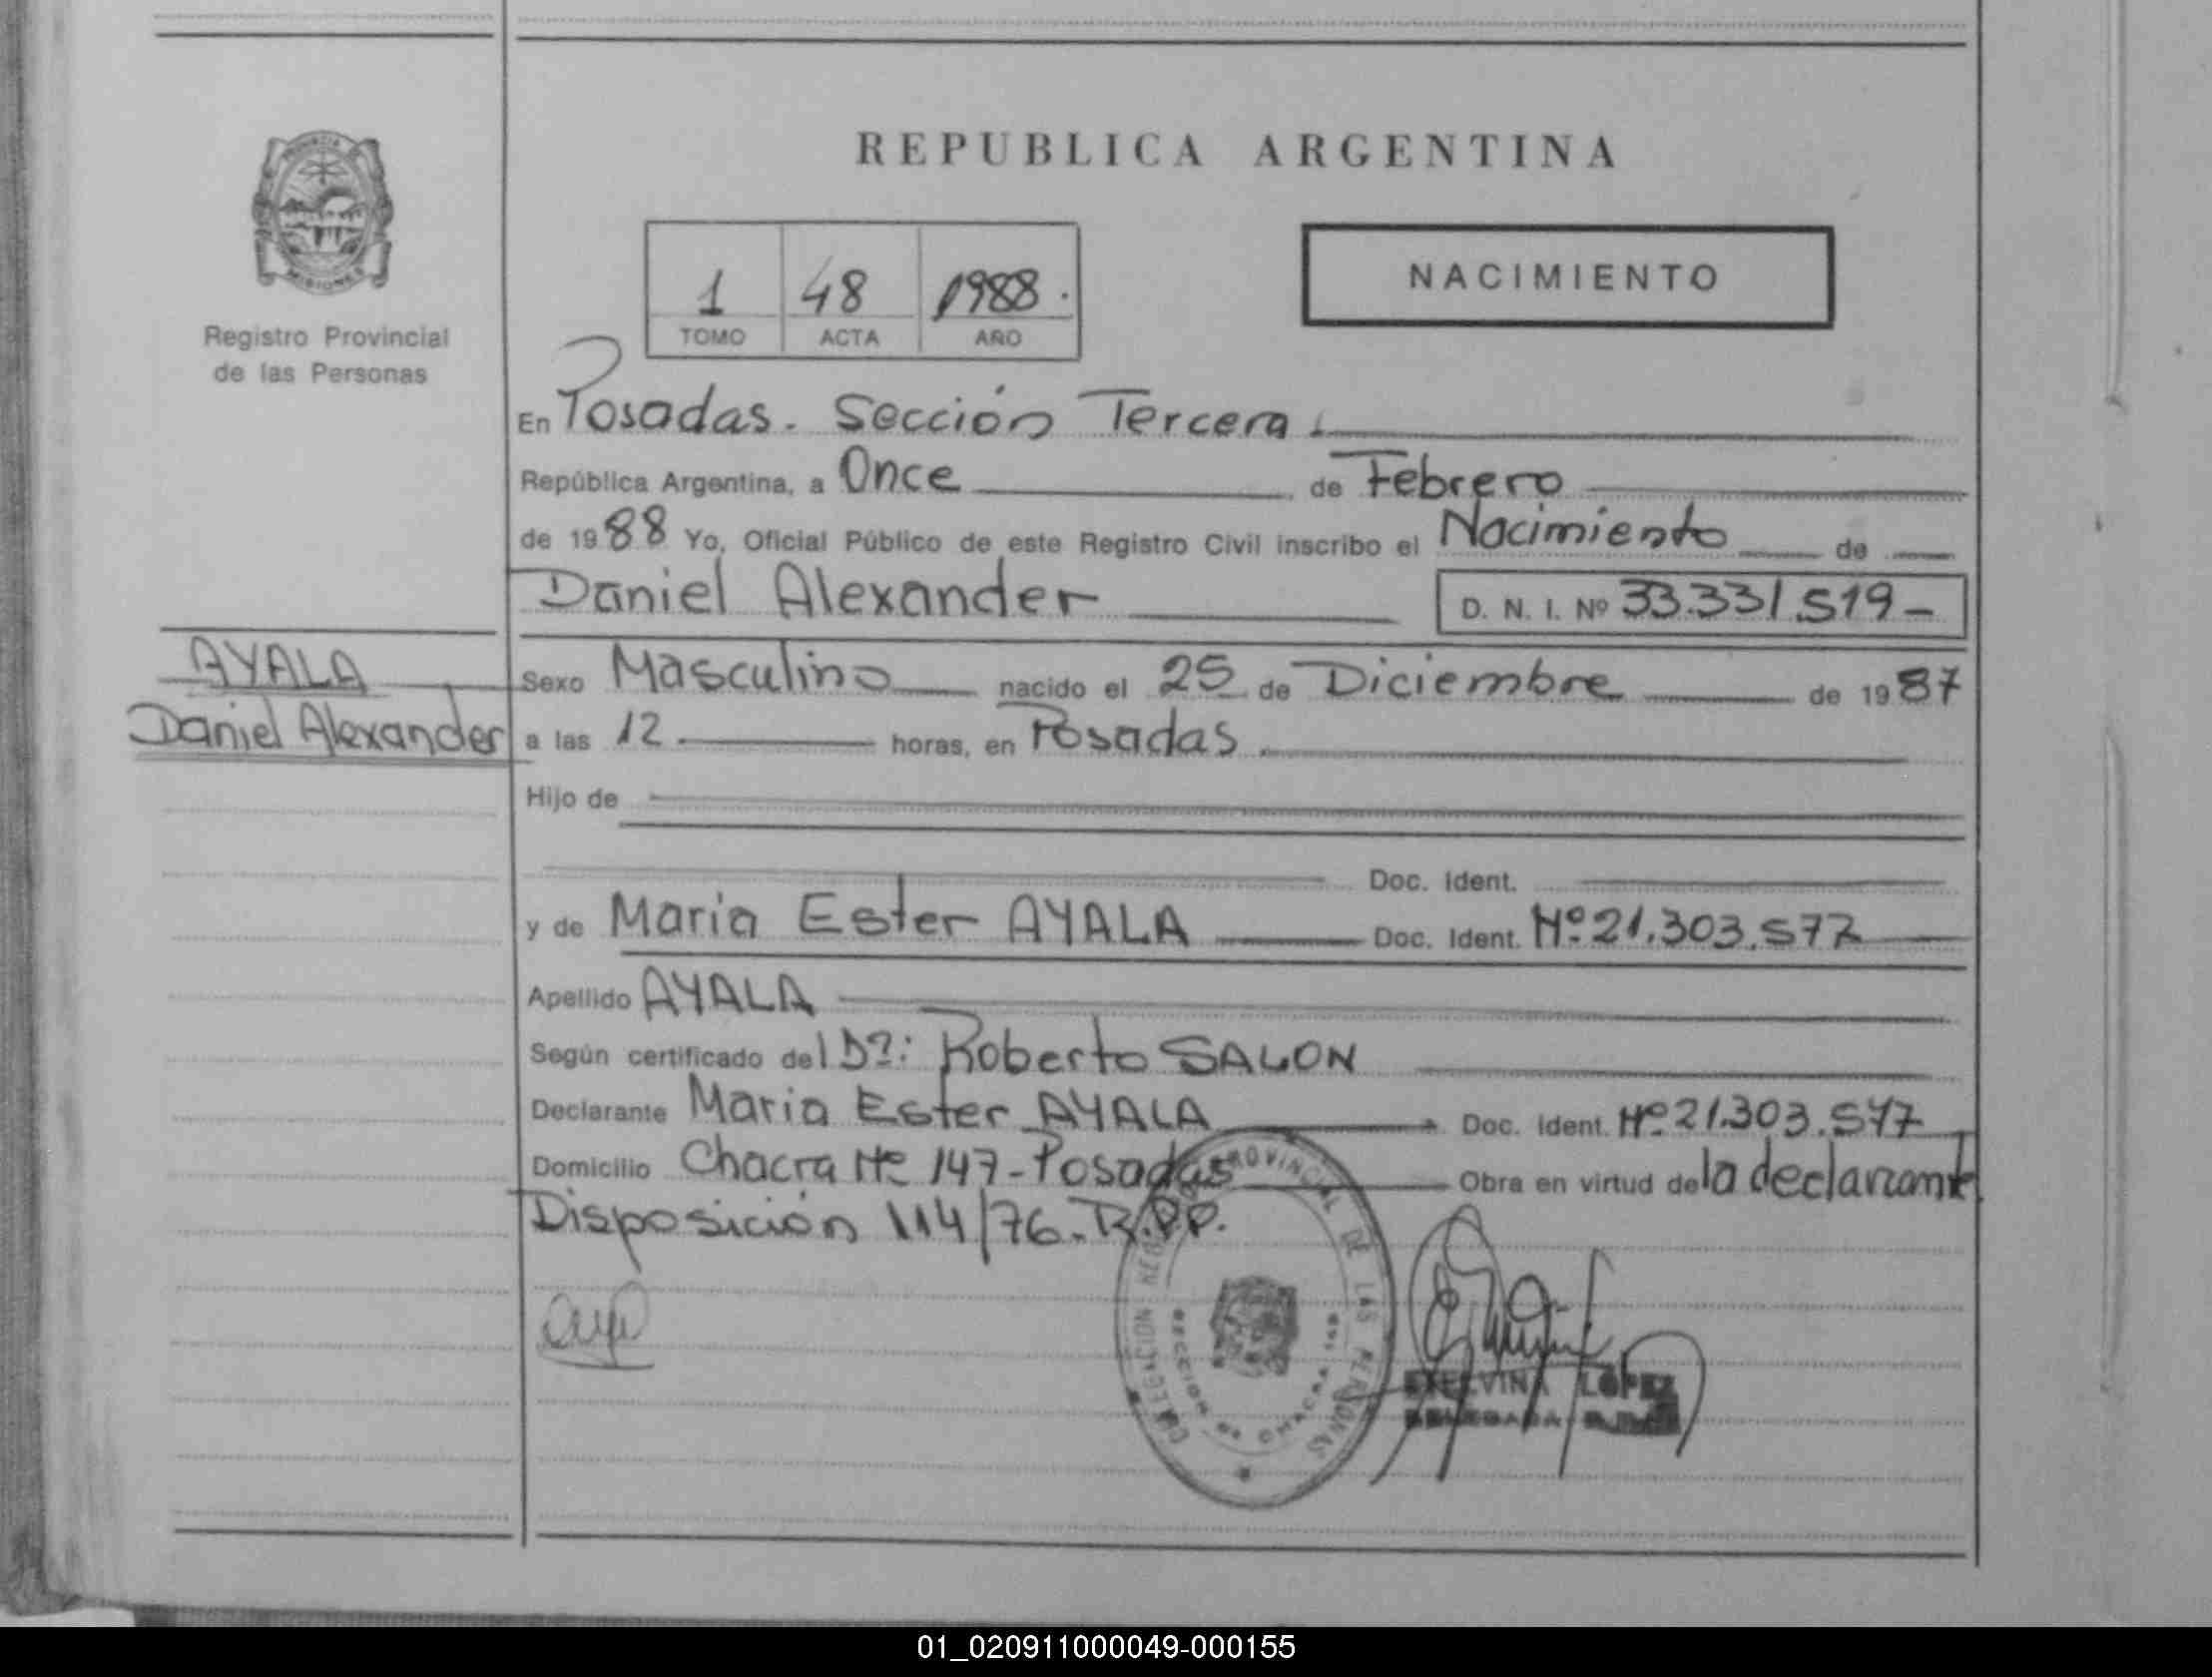 REPUBLICA ARGENTINA
1 48 1988.
TOMO ACTA AÑO
NACIMIENTO
PROVINCIA
MISIONES
Registro Provincial
de las Personas
En Posadas. Sección Tercera.
República Argentina, a Once, de Febrero
de 1988 Yo, Oficial Público de este Registro Civil inscribo el Nacimiento de
Daniel Alexander D. N. I. Nº 33.331.519-
AYALA
Daniel Alexander
Sexo Masculino nacido el 25 de Diciembre de 1987
a las 12. horas, en Posadas.
Hijo de
Doc. Ident.
y de Maria Ester AYALA Doc. Ident. Nº 21.303.577
Apellido AYALA
Según certificado del Dr: Roberto SALON
Declarante Maria Ester AYALA Doc. Ident. Nº 21.303.577
Domicilio Chacra Nº 147-Posadas Obra en virtud de la declarante
Disposición 114/76-R.P.P.
PROVINCIAL DE LAS PERSONAS
LOPEZ
DELEGADA
01_020911000049-000155